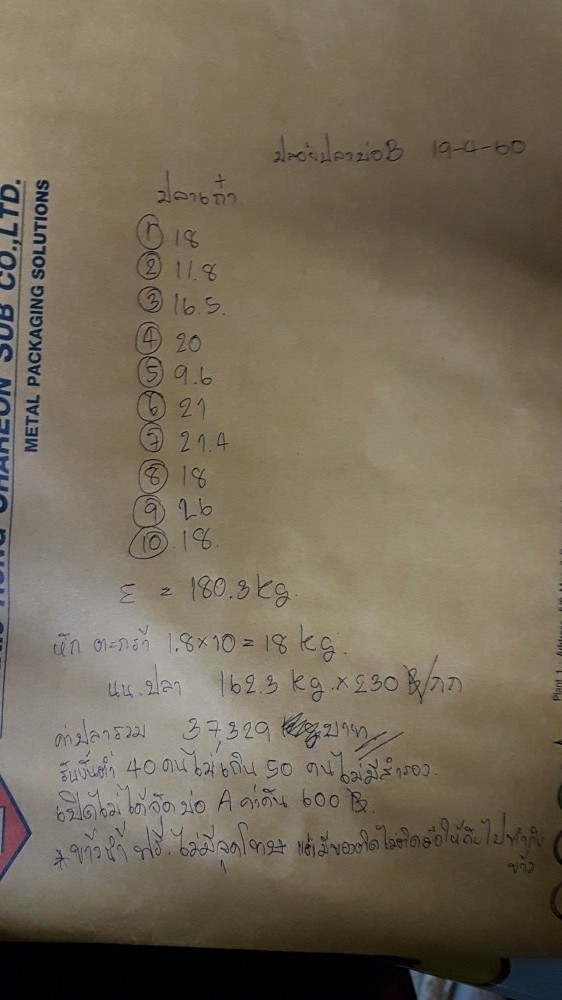 ปล่อยปลาบ่อ B 19-4-60
ปลาเก๋า
① 18
② 11.8
③ 16.5.
④ 20
⑤ 9.6
⑥ 21
⑦ 21.4
⑧ 18
⑨ 26
⑩ 18
Σ = 180.3 kg.
หัก ตะกร้า 1.8×10 = 18 kg.
นน.ปลา 162.3 kg. × 230 ฿/กก
ค่าปลารวม 37329 บาท
รับขั้นต่ำ 40 คนไม่เกิน 50 คนไม่มีสำรอง.
เปิดไม่ได้จัดบ่อ A ค่าคัน 600 ฿.
*ข้าวน้ำ ฟรี. ไม่มีจุดโทษ แต่มีของ
ข้าว
CHAREON SUB CO.,LTD.
METAL PACKAGING SOLUTIONS